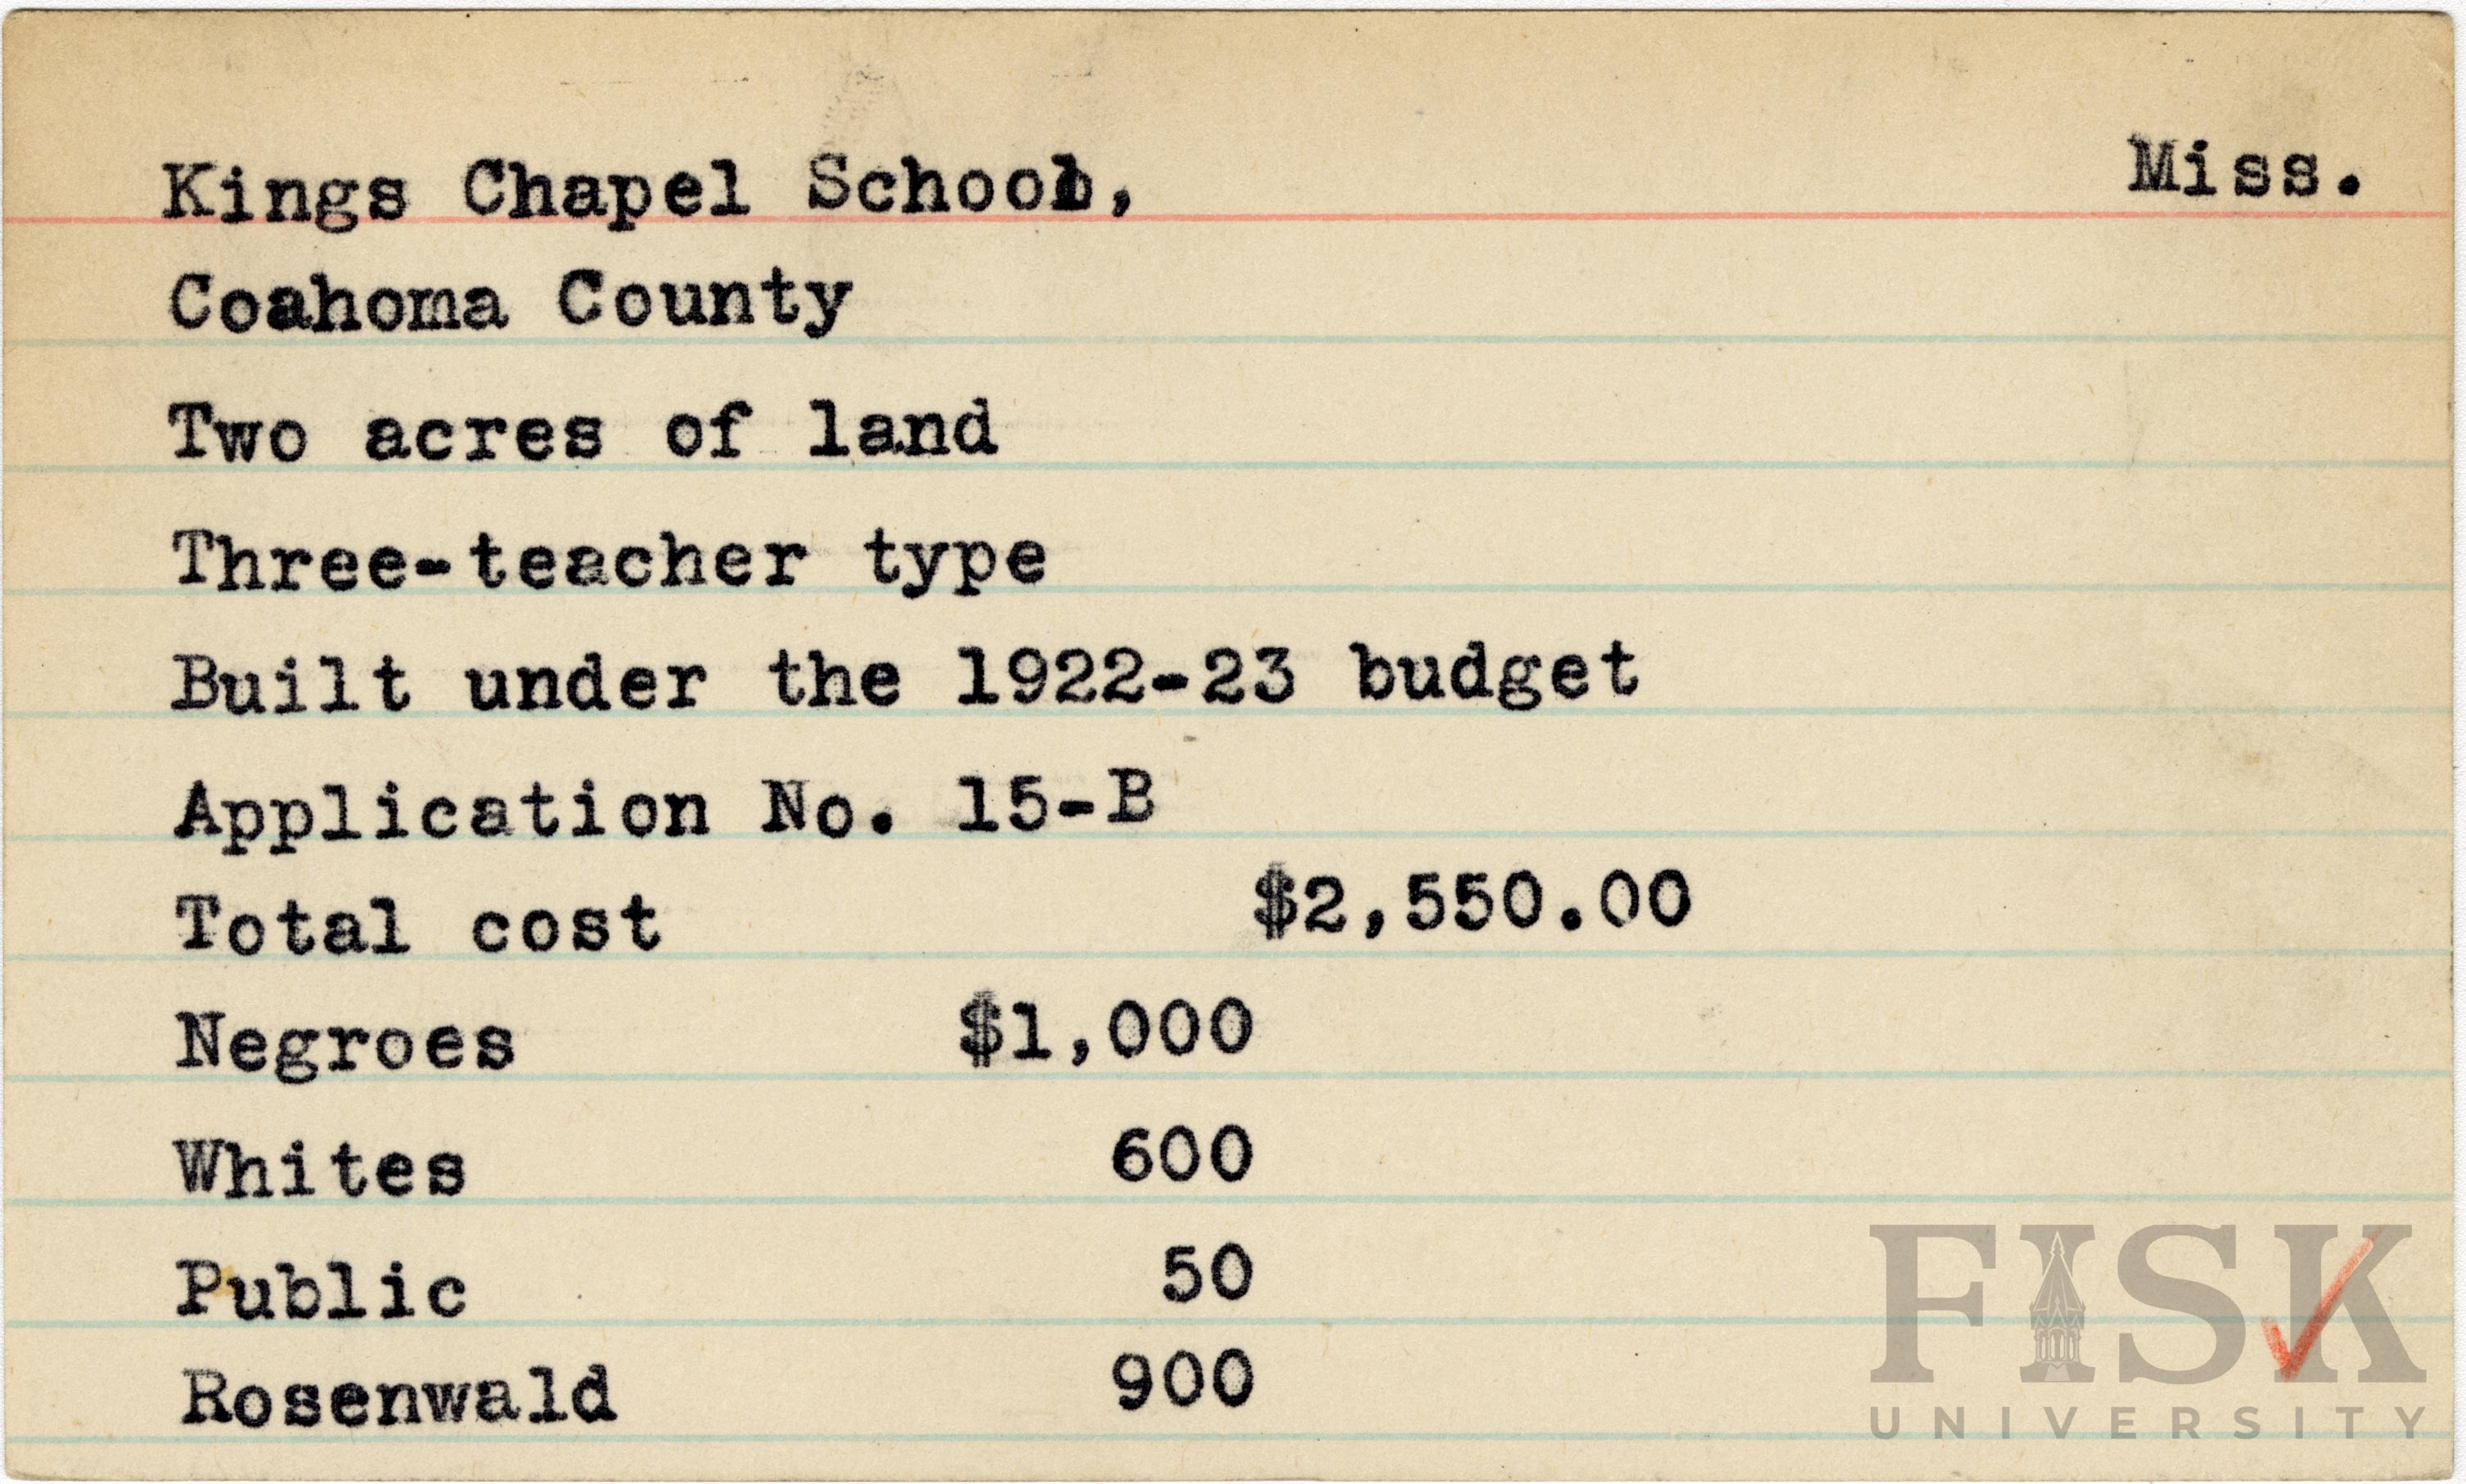 Kings Chapel School, Miss.
Coahoma County
Two acres of land
Three-teacher type
Built under the 1922-23 budget
Application No. 15-B
Total cost $2,550.00
Negroes $1,000
Whites 600
Public 50
Rosenwald 900
FISK
UNIVERSITY